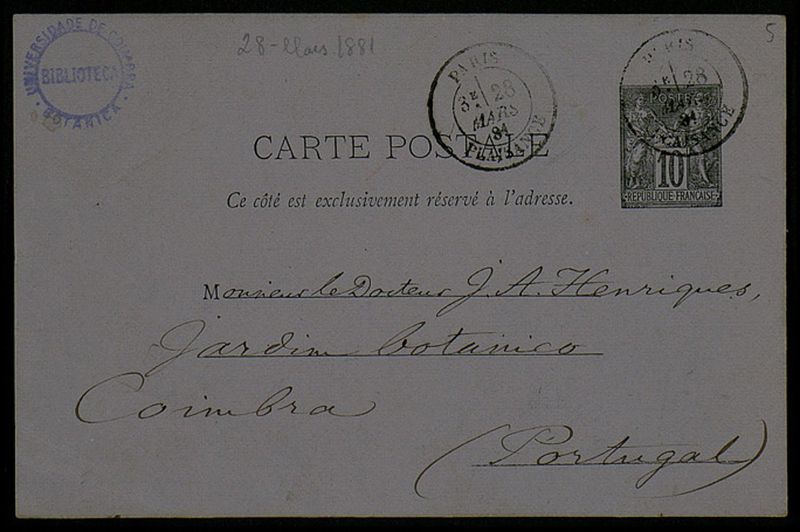 UNIVERSIDADE DE COIMBRA
BIBLIOTECA
BOTANICA
28-Mars 1881
5
PARIS
3E 28
MARS
81
PLAISANCE
PARIS
E 28
MARS
81
PLAISANCE
CARTE POSTALE
POSTES
10
REPUBLIQUE FRANÇAISE
Ce côté est exclusivement réservé à l'adresse.
Monsieur le Docteur J. A. Henriques,
Jardim botanico
Coimbra
(Portugal)